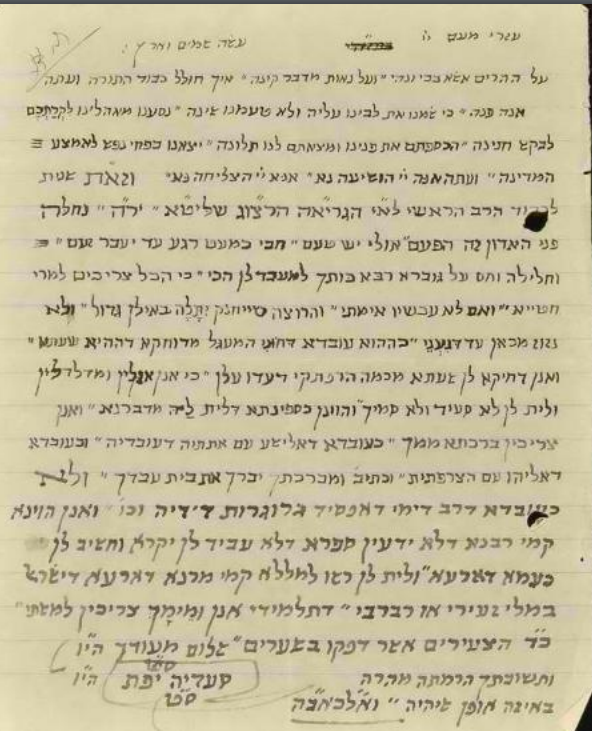 עזרי מעם ה׳ עשה שמים וארץ :
על ההרים אשא בכי ונהי ״ ועל נאות מדבר קינה ״ איך חולל כבוד התורה ועתה
אנה פנה ״ כי שמנו את לבינו עליה ולא טעמנו שינה ״ נסענו מאהלינו לקראתכם
לבקש חנינה ״ הכספתם את פנינו ומצאתם לנו תלונה ״ יצאנו בפחי נפש לאמצע
המדינה ״ ועתה אנה יי׳ הושיעה נא ״ אנא יי׳ הצליחה נא ״ וזאת שטת
לכבוד הרב הראשי לא״י הגרי״אה הרצוג שליט״א ״ יר״ה ״ נחלה
פני האדון זה הפעם ״ אולי יש טעם ״ חבי כמעט רגע עד יעבר זעם ״
וחלילה וחס על גוברא רבא כותך למעבד לן הכי ״ כי הכל צריכים למרי
חטייא ״ ואם לא עכשיו אימתי ״ והרוצה שייחנק יתלה באילן גדול ״ ולא
נזוז מכאן עד דנענני ״ כההוא עובדא דחוני המעגל מדוחקא דההיא שעתא ״
ואנן דחיקא לן שעתא מכמה הרפתקי דעדו עלן ״ כי אנן אזלין ומדלדלין
ולית לן לא סעיד ולא סמיך ״ והוינן כספינתא דלית לה מדברנא ״ ואנן
צריכין ברכתא ממך ״ כעובדא דאלישע עם אתתיה דעובדיה ״ וכעובדא
דאליהו עם הצרפתית ״ וכתיב׳ ומברכתך יברך את בית עבדך ״ ולא
כעובדא דרב דימי דאפסיד גרוגרות דידיה וכו׳ ״ ואנן הוינא
קמי רבנא דלא ידעין ספרא דלא עביד לן יקרא וחשיב לן
כעמא דארעא ״ ולית לן רשו למללא קמי מרנא דארעא דישראל
במלי זעירי או רברבי ״ דתלמידי אנן ומימך צריכין למשתי ״
כ״ד הצעירים אשר דפקו בשערים ״ שלום מעודך הי״ו
ס״ט
ותשובתך הרמתה מהרה סעדיה יפת הי״ו
באיזה אופן שיהיה ״ ואלכאבה ס״ט